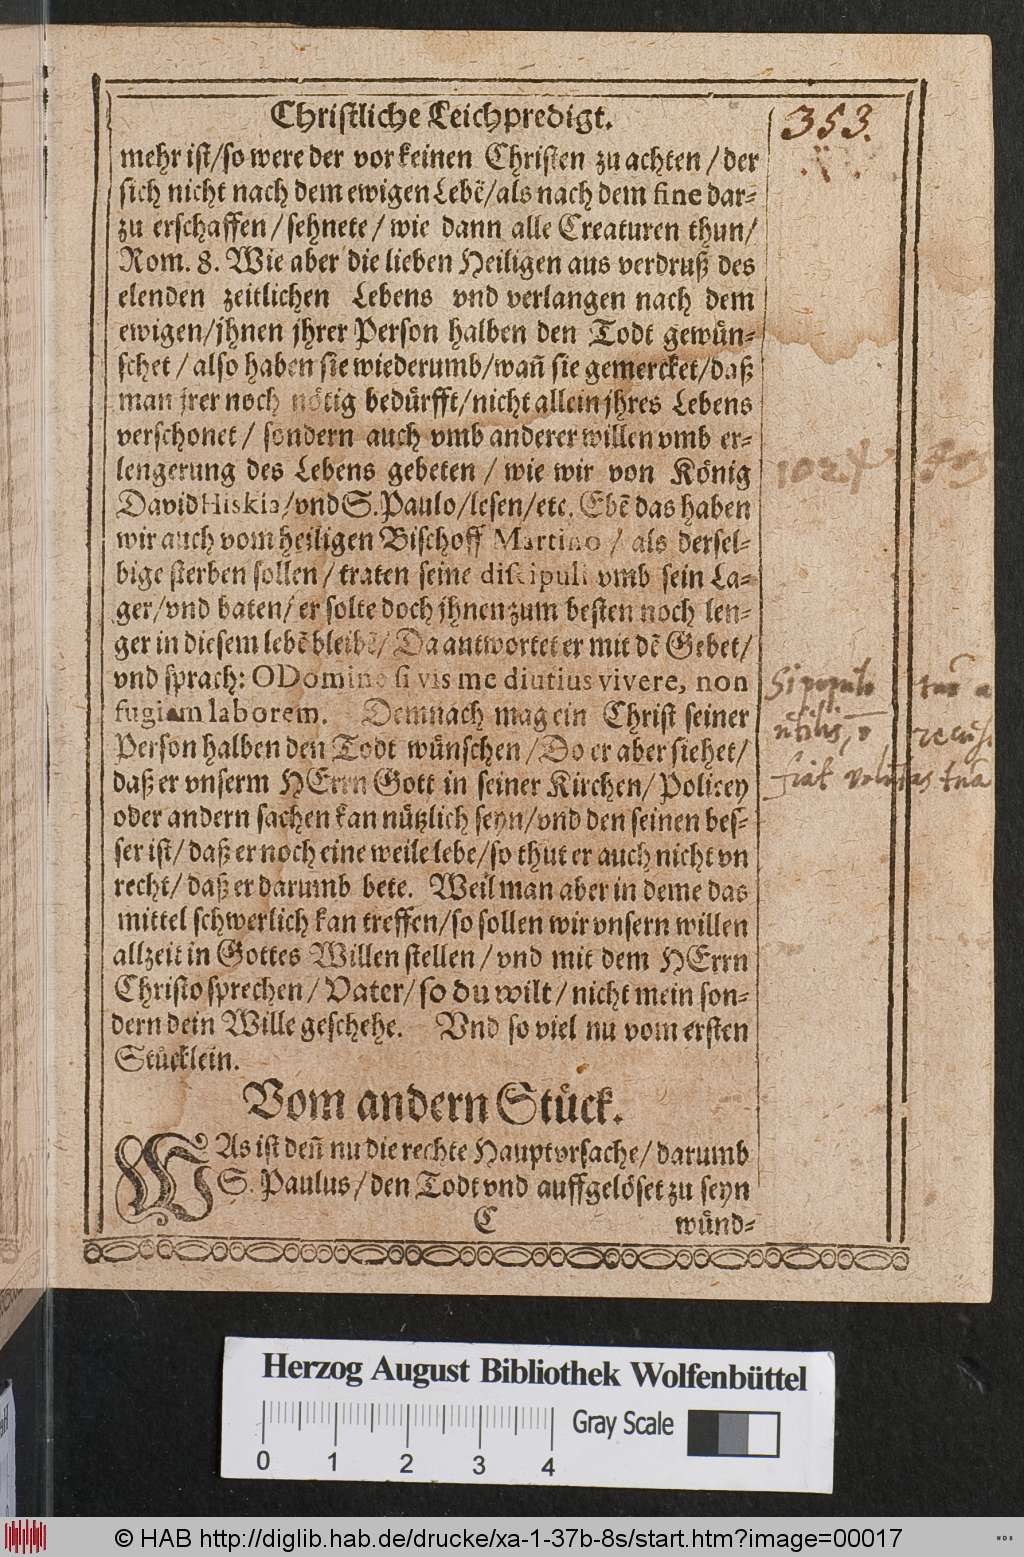 Christliche Leichpredigt.
353.
mehr ist/so were der vor keinen Christen zu achten/der
sich nicht nach dem ewigen Lebẽ/als nach dem fine dar-
zu erschaffen/sehnete/wie dann alle Creaturen thun/
Rom. 8. Wie aber die lieben Heiligen aus verdruß des
elenden zeitlichen Lebens vnd verlangen nach dem
ewigen/jhnen jhrer Person halben den Todt gewün-
schet/also haben sie wiederumb/wañ sie gemercket/daß
man jrer noch nötig bedürfft/nicht allein jhres Lebens
verschonet/sondern auch vmb anderer willen vmb er-
lengerung des Lebens gebeten/wie wir von König
David Hiskia/vnd S. Paulo/lesen/etc. Ebẽ das haben
wir auch vom heiligen Bischoff Martino/als dersel-
bige sterben sollen/traten seine discipuli vmb sein La-
ger/vnd baten/er solte doch jhnen zum besten noch len-
ger in diesem lebẽ bleibẽ/Da antwortet er mit dẽ Gebet/
vnd sprach: O Domine si vis me diutius vivere, non
fugiam laborem. Demnach mag ein Christ seiner
Person halben den Todt wünschen/Do er aber siehet/
daß er vnserm HErrn Gott in seiner Kirchen/Policey
oder andern sachen kan nützlich seyn/vnd den seinen bes-
ser ist/daß er noch eine weile lebe/so thut er auch nicht vn
recht/daß er darumb bete. Weil man aber in deme das
mittel schwerlich kan treffen/so sollen wir vnsern willen
allzeit in Gottes Willen stellen/vnd mit dem HErrn
Christo sprechen/Vater/so du wilt/nicht mein son-
dern dein Wille geschehe. Vnd so viel nu vom ersten
Stücklein.
Si populo tuo
utilis,
fiat volũtas tua
Vom andern Stück.
WAs ist deñ nu die rechte Hauptvrsache/darumb
S. Paulus/den Todt vnd auffgelöset zu seyn
C wünd-
Herzog August Bibliothek Wolfenbüttel
Gray Scale
0 1 2 3 4
© HAB http://diglib.hab.de/drucke/xa-1-37b-8s/start.htm?image=00017